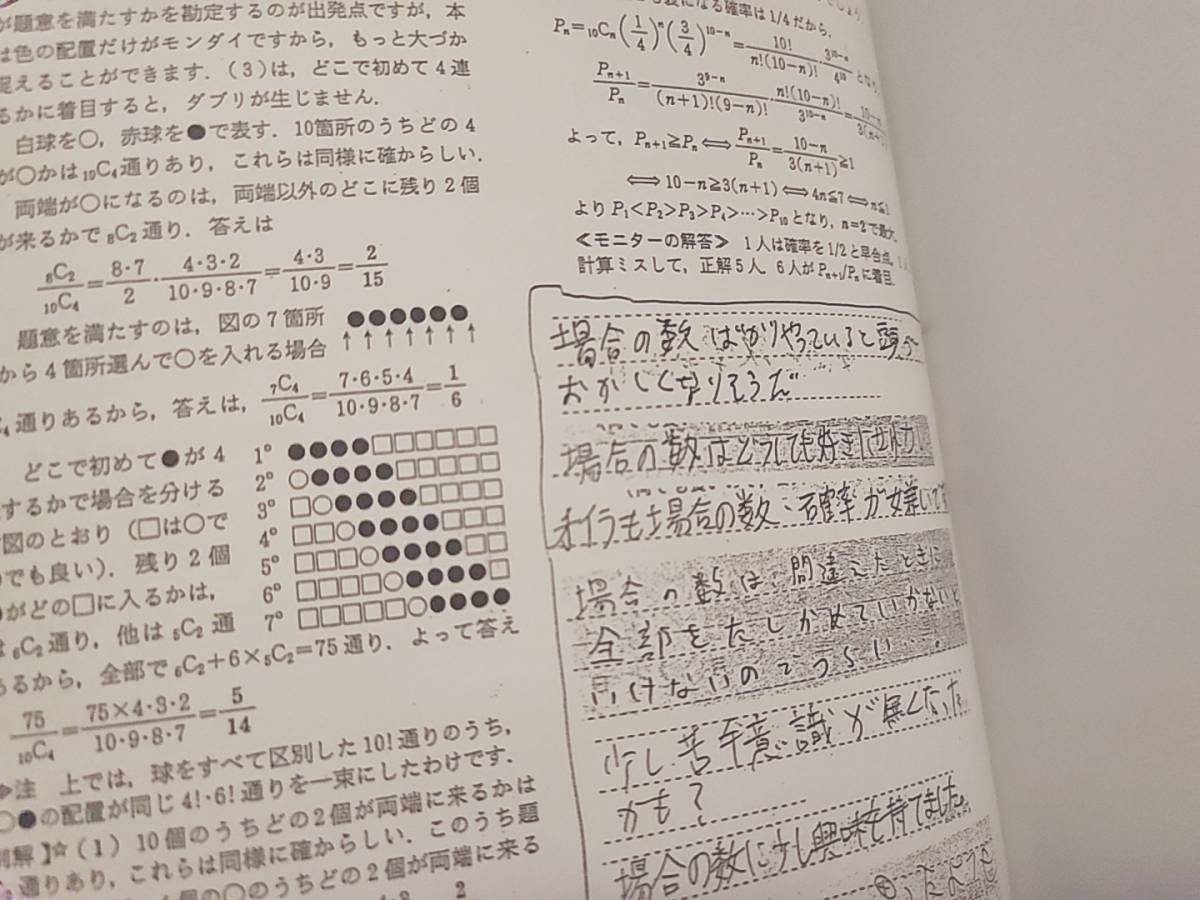 が題意を満たすかを勘定するのが出発点ですが，本
は色の配置だけがモンダイですから，もっと大づか
捉えることができます．（3）は，どこで初めて4連
るかに着目すると，ダブリが生じません．
白球を○，赤球を●で表す．10箇所のうちどの4
が○かは₁₀C₄通りあり，これらは同様に確からしい．
両端が○になるのは，両端以外のどこに残り2個
が来るかで₈C₂通り．答えは
₈C₂/₁₀C₄=8・7/2・4・3・2/10・9・8・7=4・3/10・9=2/15
題意を満たすのは，図の7箇所
から4箇所選んで○を入れる場合
●●●●●●
↑↑↑↑↑↑↑
₄通りあるから，答えは，₇C₄/₁₀C₄=7・6・5・4/10・9・8・7=1/6
どこで初めて●が4
するかで場合を分ける
図のとおり（□は○で
でも良い）．残り2個
がどの□に入るかは，
は₆C₂通り，他は₅C₂通
1° ●●●●□□□□□□
2° ○●●●●□□□□□
3° □○●●●●□□□□
4° □□○●●●●□□□
5° □□□○●●●●□□
6° □□□□○●●●●□
7° □□□□□○●●●●
あるから，全部で₆C₂+6×₅C₂=75通り．よって答え
75/₁₀C₄=75×4・3・2/10・9・8・7=5/14
注 上では，球をすべて区別した10!通りのうち，
○●の配置が同じ4!・6!通りを一束にしたわけです．
別解】☆（1）10個のうちどの2個が両端に来るかは
通りあり，これらは同様に確からしい．このうち題
個の○のうちどの2個が両端に来る
になる確率は1/4だから，
Pₙ=₁₀Cₙ(1/4)ⁿ(3/4)¹⁰⁻ⁿ=10!/n!(10-n)!・3¹⁰⁻ⁿ/4¹⁰ とな
Pₙ₊₁/Pₙ=3⁹⁻ⁿ/(n+1)!(9-n)!・n!(10-n)!/3¹⁰⁻ⁿ=10-n/3(n+1)
よって，Pₙ₊₁≧Pₙ⟺Pₙ₊₁/Pₙ=10-n/3(n+1)≧1
⟺10-n≧3(n+1)⟺4n≦7⟺n≦1
よりP₁<P₂>P₃>P₄>…>P₁₀となり，n=2で最大．
≪モニターの解答≫ 1人は確率を1/2と早合点．
計算ミスして，正解5人．6人がPₙ₊₁/Pₙに着目．
場合の数ばかりやっていると頭が
おかしくなりそうだ
場合の数はどうしても好きに
オイラも場合の数、確率が嫌いで
場合の数は、間違えたときに
全部をたしかめていかないと
いけないのでつらい。
少し苦手意識が無くなった
かも？
場合の数に少し興味を持てました。